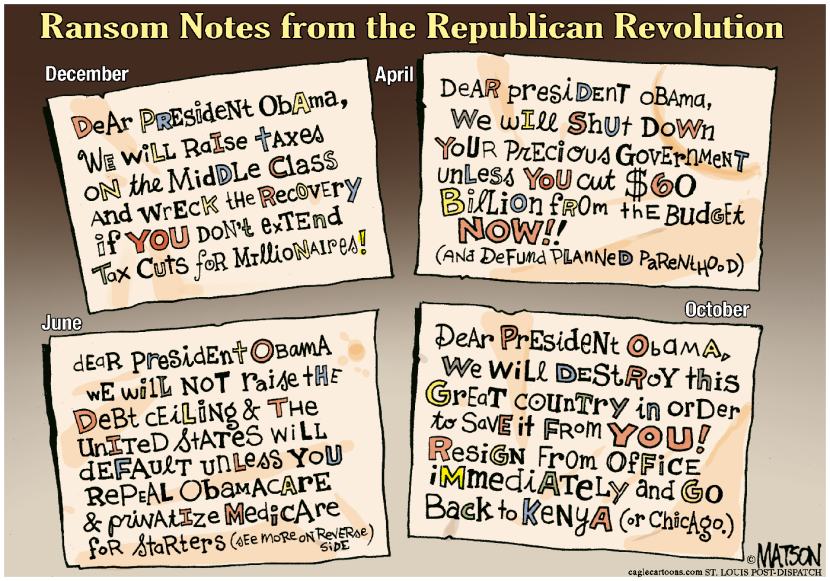 Ransom Notes from the Republican Revolution
December
DeAr PREsideNt ObAma,
WE WiLL RaIse tAxes
oN the MidDLE Class
And WrecK the RecOvERy
if YOU DoN't exTEnd
Tax CUts foR MIllioNaires!
April
DeAR presiDENT oBAma,
We wILL ShUt DoWn
YoUR PrEciOus GoverNmeNT
unLess YOU cut $60
BilLiOn fRom thE BuDgEt
NOW!!
(And DeFund PLAnNeD PaRenTHooD)
June
dEaR PResidEnt ObamA
wE wiLL NOT raise tHE
DeBt cEiLiNg & THe
UnITeD StATeS WiLL
dEFAuLT unLess YoU
RePeAL ObamACARe
& privatIze MedicAre
foR StaRters (SeE MoRe oN ReVeRse)
SiDE
October
DeAr PrEsideNt ObAMA,
We WiLL DEStRoY this
GreaT coUnTRy in orDer
to SaVE it FRom YOU!
REsiGN FRom OfFICE
iMmediATeLy and GO
BacK to KeNyA (or ChicAgo.)
© MATSON
caglecartoons.com ST. LOUIS POST-DISPATCH